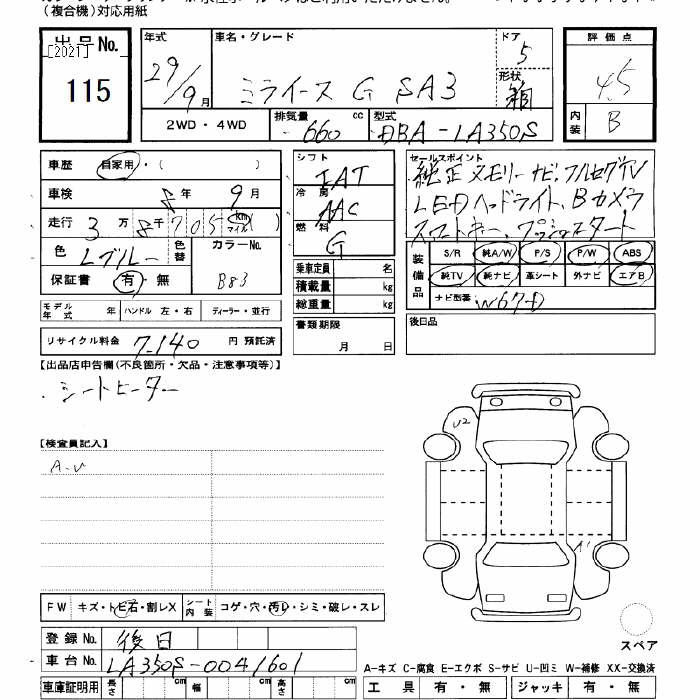 （複合機）対応用紙
出品No.
[2021]
115
年式
29/9月
車名・グレード
ミライース G SA3
ドア
5
形状
箱
2WD・4WD
排気量
660 cc
型式
DBA-LA350S
評価点
4.5
内装
B
車歴 自家用・( )
車検 8年 9月
走行 3万8千705 km マイル
色 Lブルー
色替
カラーNo.
B83
保証書 有・無
モデル年式 年 ハンドル 左・右 ディーラー・並行
リサイクル料金 7,140 円 預託済
シフト
IAT
冷房
AAC
燃料
G
乗車定員 名
積載量 kg
総重量 kg
書類期限
月 日
セールスポイント
純正メモリーナビ、フルセグTV
LEDヘッドライト、Bカメラ
スマートキー、プッシュスタート
装備品
S/R 純A/W P/S P/W ABS
純TV 純ナビ 革シート 外ナビ エアB
ナビ型番 W67D
後日品
【出品店申告欄(不良箇所・欠品・注意事項等)】
・シートヒーター
【検査員記入】
A.U
U2
A1
FW キズ・トビ石・割レX シート内装 コゲ・穴・汚レ・シミ・破レ・スレ
登録No. 後日
車台No. LA350S-0041601
車庫証明用 長さ cm 幅 cm 高さ cm
スペア
A-キズ C-腐食 E-エクボ S-サビ U-凹ミ W-補修 XX-交換済
工具 有・無 ジャッキ 有・無